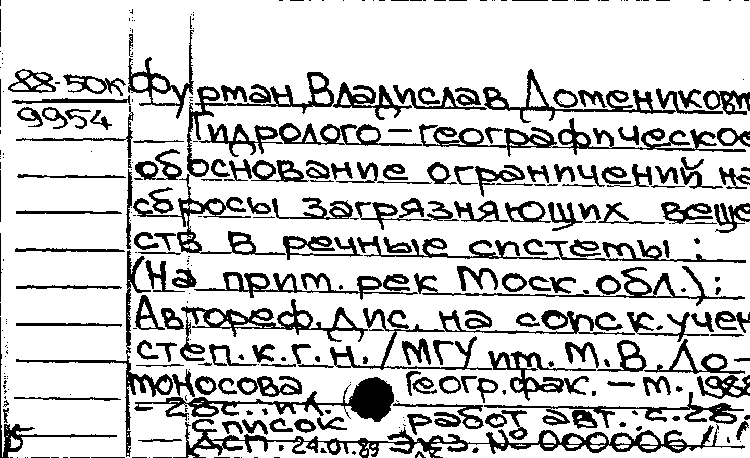 88-50к Фурман, Владислав Доменикович
9954 Гидролого-географическое
обоснование ограничений на
сбросы загрязняющих веще
ств в речные системы :
(На прим. рек Моск. обл.);
Автореф. дис. на соиск. учен
степ. к. г. н. / МГУ им. М. В. Ло-
моносова Геогр. фак. - М., 1988
- 28 с. : ил.
список работ авт. : с. 28,
ДСП. 24.01.89 Экз. № 000006